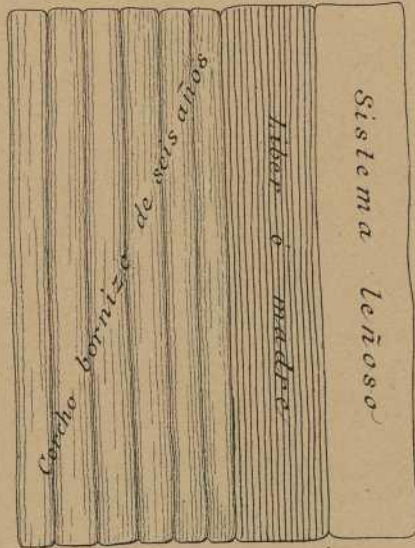 Corcho bornizo de seis años
Liber ó madre
Sistema leñoso